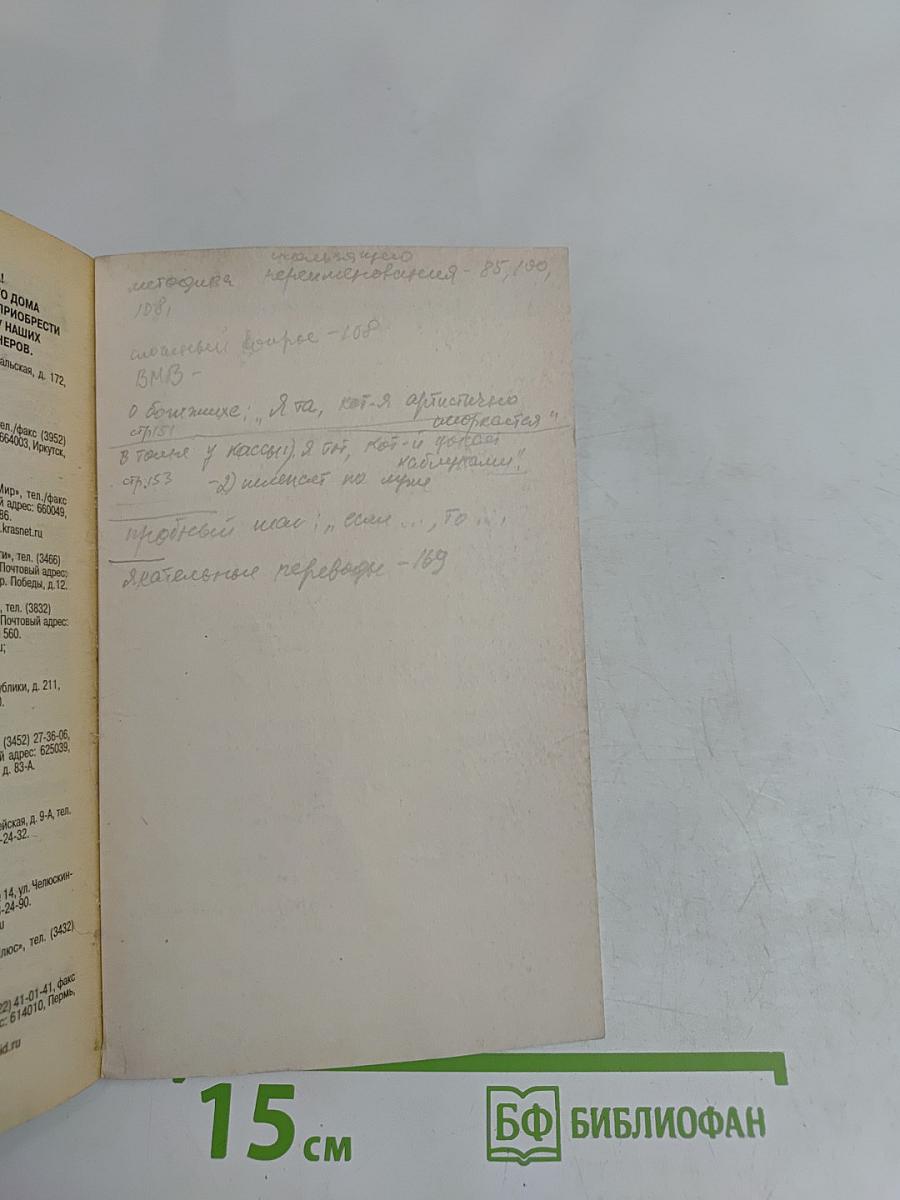 !
О ДОМА
ПРИОБРЕСТИ
У НАШИХ
НЕРОВ.
альская, д. 172,
ел./факс (3952)
664003, Иркутск,
Мир», тел./факс
й адрес: 660049,
86.
.krasnet.ru
ти», тел. (3466)
Почтовый адрес:
р. Победы, д.12.
, тел. (3832)
Почтовый адрес:
560.
u;
ублики, д. 211,
0.
(3452) 27-36-06,
й адрес: 625039,
д. 83-А.
ейская, д. 9-А, тел.
-24-32.
14, ул. Челюскин-
-24-90.
u
люс», тел. (3432)
22) 41-01-41, факс
с: 614010, Пермь,
id.ru
скользящего
методика переименования - 85, 190,
108,
сложный вопрос - 108
ВМВ -
о бомжихе: "Я та, кот-я артистично
сморкается"
стр 151
в толпе у кассы: 1) Я тот, кот-й
каблуками",
стр. 153 - 2) шлепает по луже
пробный шаг: "если ..., то ...,
Якательные переводы - 169
15 см
БФ БИБЛИОФАН